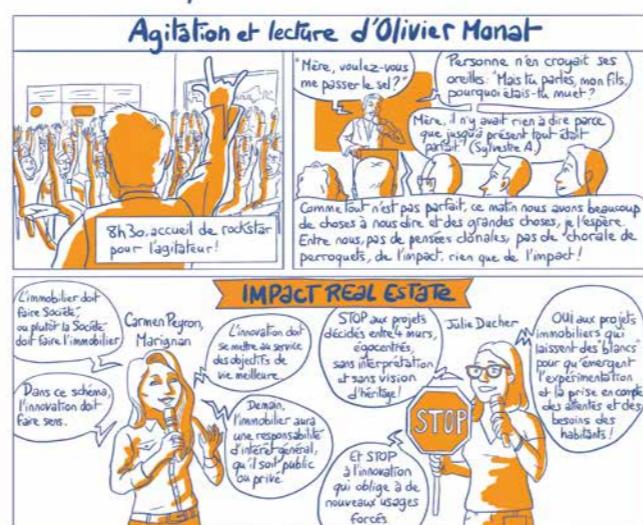 Agitation et lecture d'Olivier Monat
8h30, accueil de rockstar
pour l'agitateur!
"Mère, voulez-vous
me passer le sel?"
Personne n'en croyait ses
oreilles: "Mais tu parles, mon fils,
pourquoi étais-tu muet?
Mère, il n'y avait rien à dire parce
que jusqu'à présent tout était
parfait". (Sylvestre A.)
Comme tout n'est pas parfait, ce matin nous avons beaucoup
de choses à nous dire et des grandes choses, je l'espère.
Entre nous, pas de pensées clonales, pas de chorale de
perroquets, de l'impact, rien que de l'impact!
IMPACT REAL ESTATE
L'immobilier doit
faire Société,
ou plutôt la Société
doit faire l'immobilier
Carmen Peyron,
Marignan
Dans ce schéma,
l'innovation doit
faire sens.
L'innovation doit
se mettre au service
des objectifs de
vie meilleure.
Demain,
l'immobilier aura
une responsabilité
d'intérêt général,
qu'il soit public
ou privé
STOP aux projets
décidés entre 4 murs,
égocentrés,
sans interprétation
et sans vision
d'héritage!
Julie Ducher
STOP
Et STOP
à l'innovation
qui oblige à de
nouveaux usages
forcés.
OUI aux projets
immobiliers qui
laissent des "blancs"
pour qu'émergent
l'expérimentation
et la prise en compte
des attentes et des
besoins des
habitants!